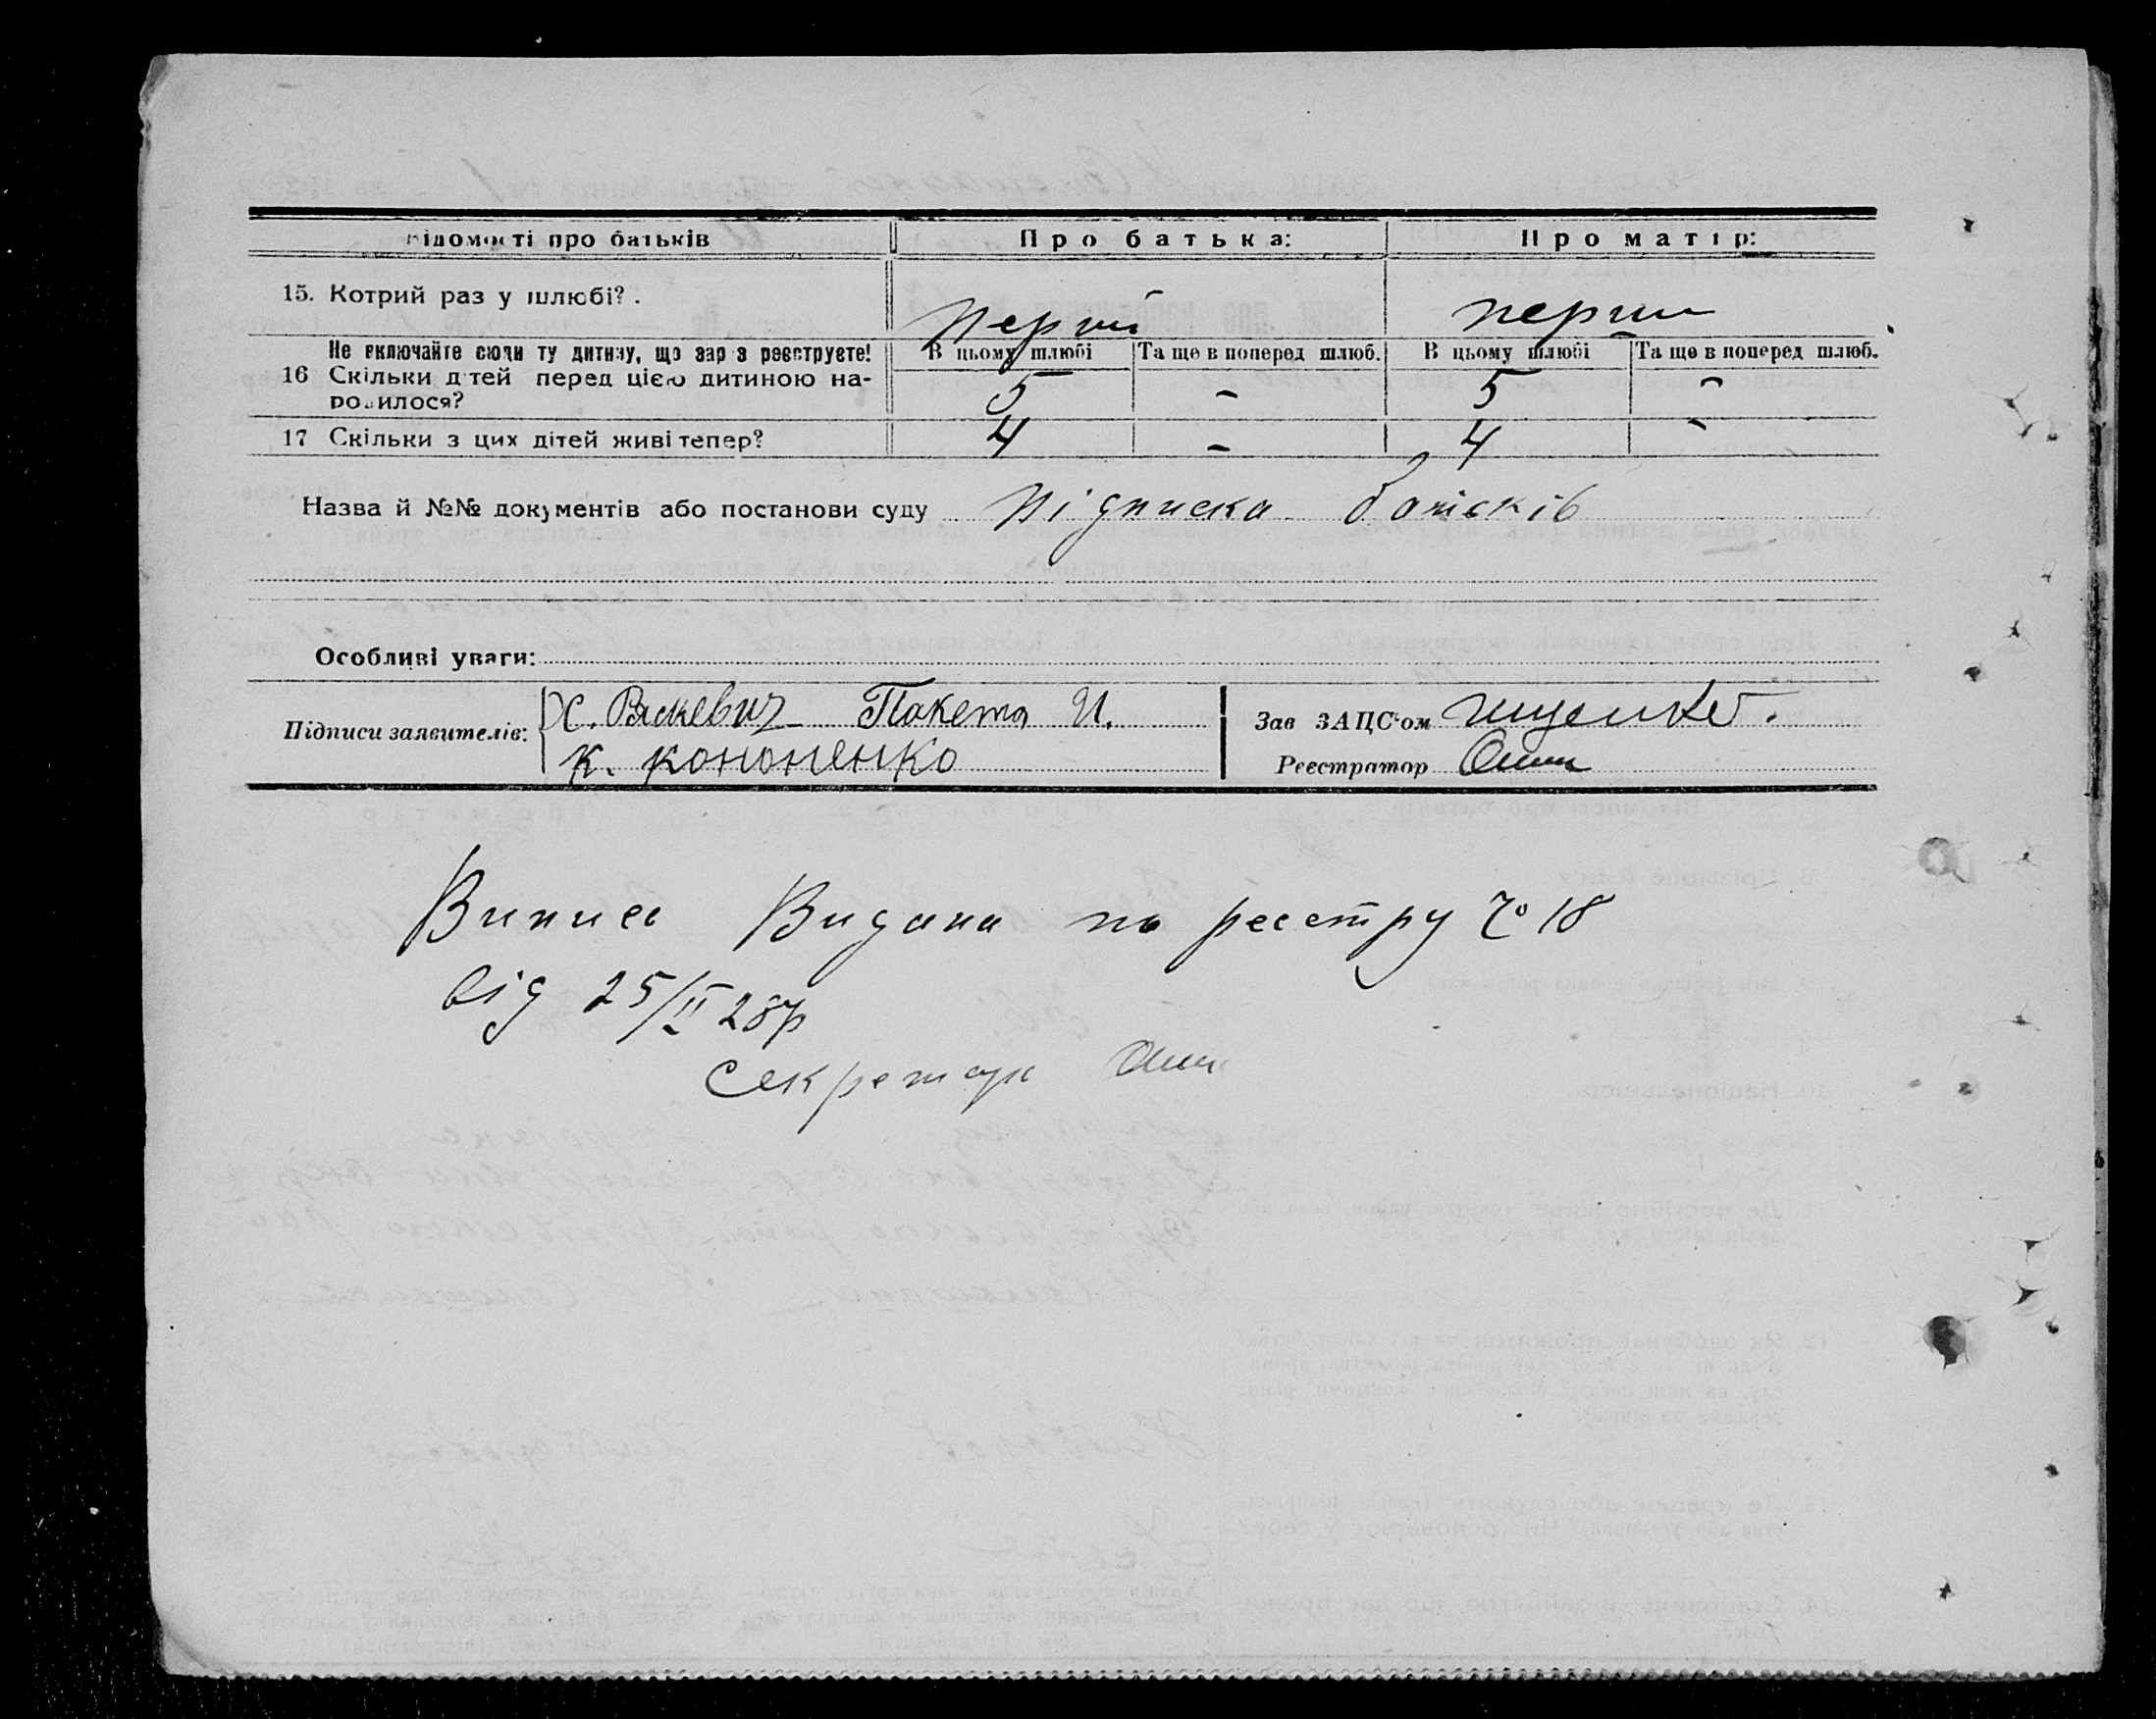 Відомості про батьків Про батька: Про матір:
15. Котрий раз у шлюбі? . перший перши
Не включайте сюди ту дитину, що зараз реєструєте! В цьому шлюбі Та ще в поперед шлюб. В цьому шлюбі Та ще в поперед шлюб.
16 Скільки дітей перед цією дитиною на- 5 - 5 -
родилося?
17 Скільки з цих дітей живі тепер? 4 - 4 -
Назва й №№ документів або постанови суду Підписка батьків
Особливі уваги:
Підписи заявителів: Х. Пакета И. Зав ЗАЦС'ом Ищенко.
К. Кононенко Реєстратор
Випись Видана по реестру № 18
від 25/II 28р
Секретарь